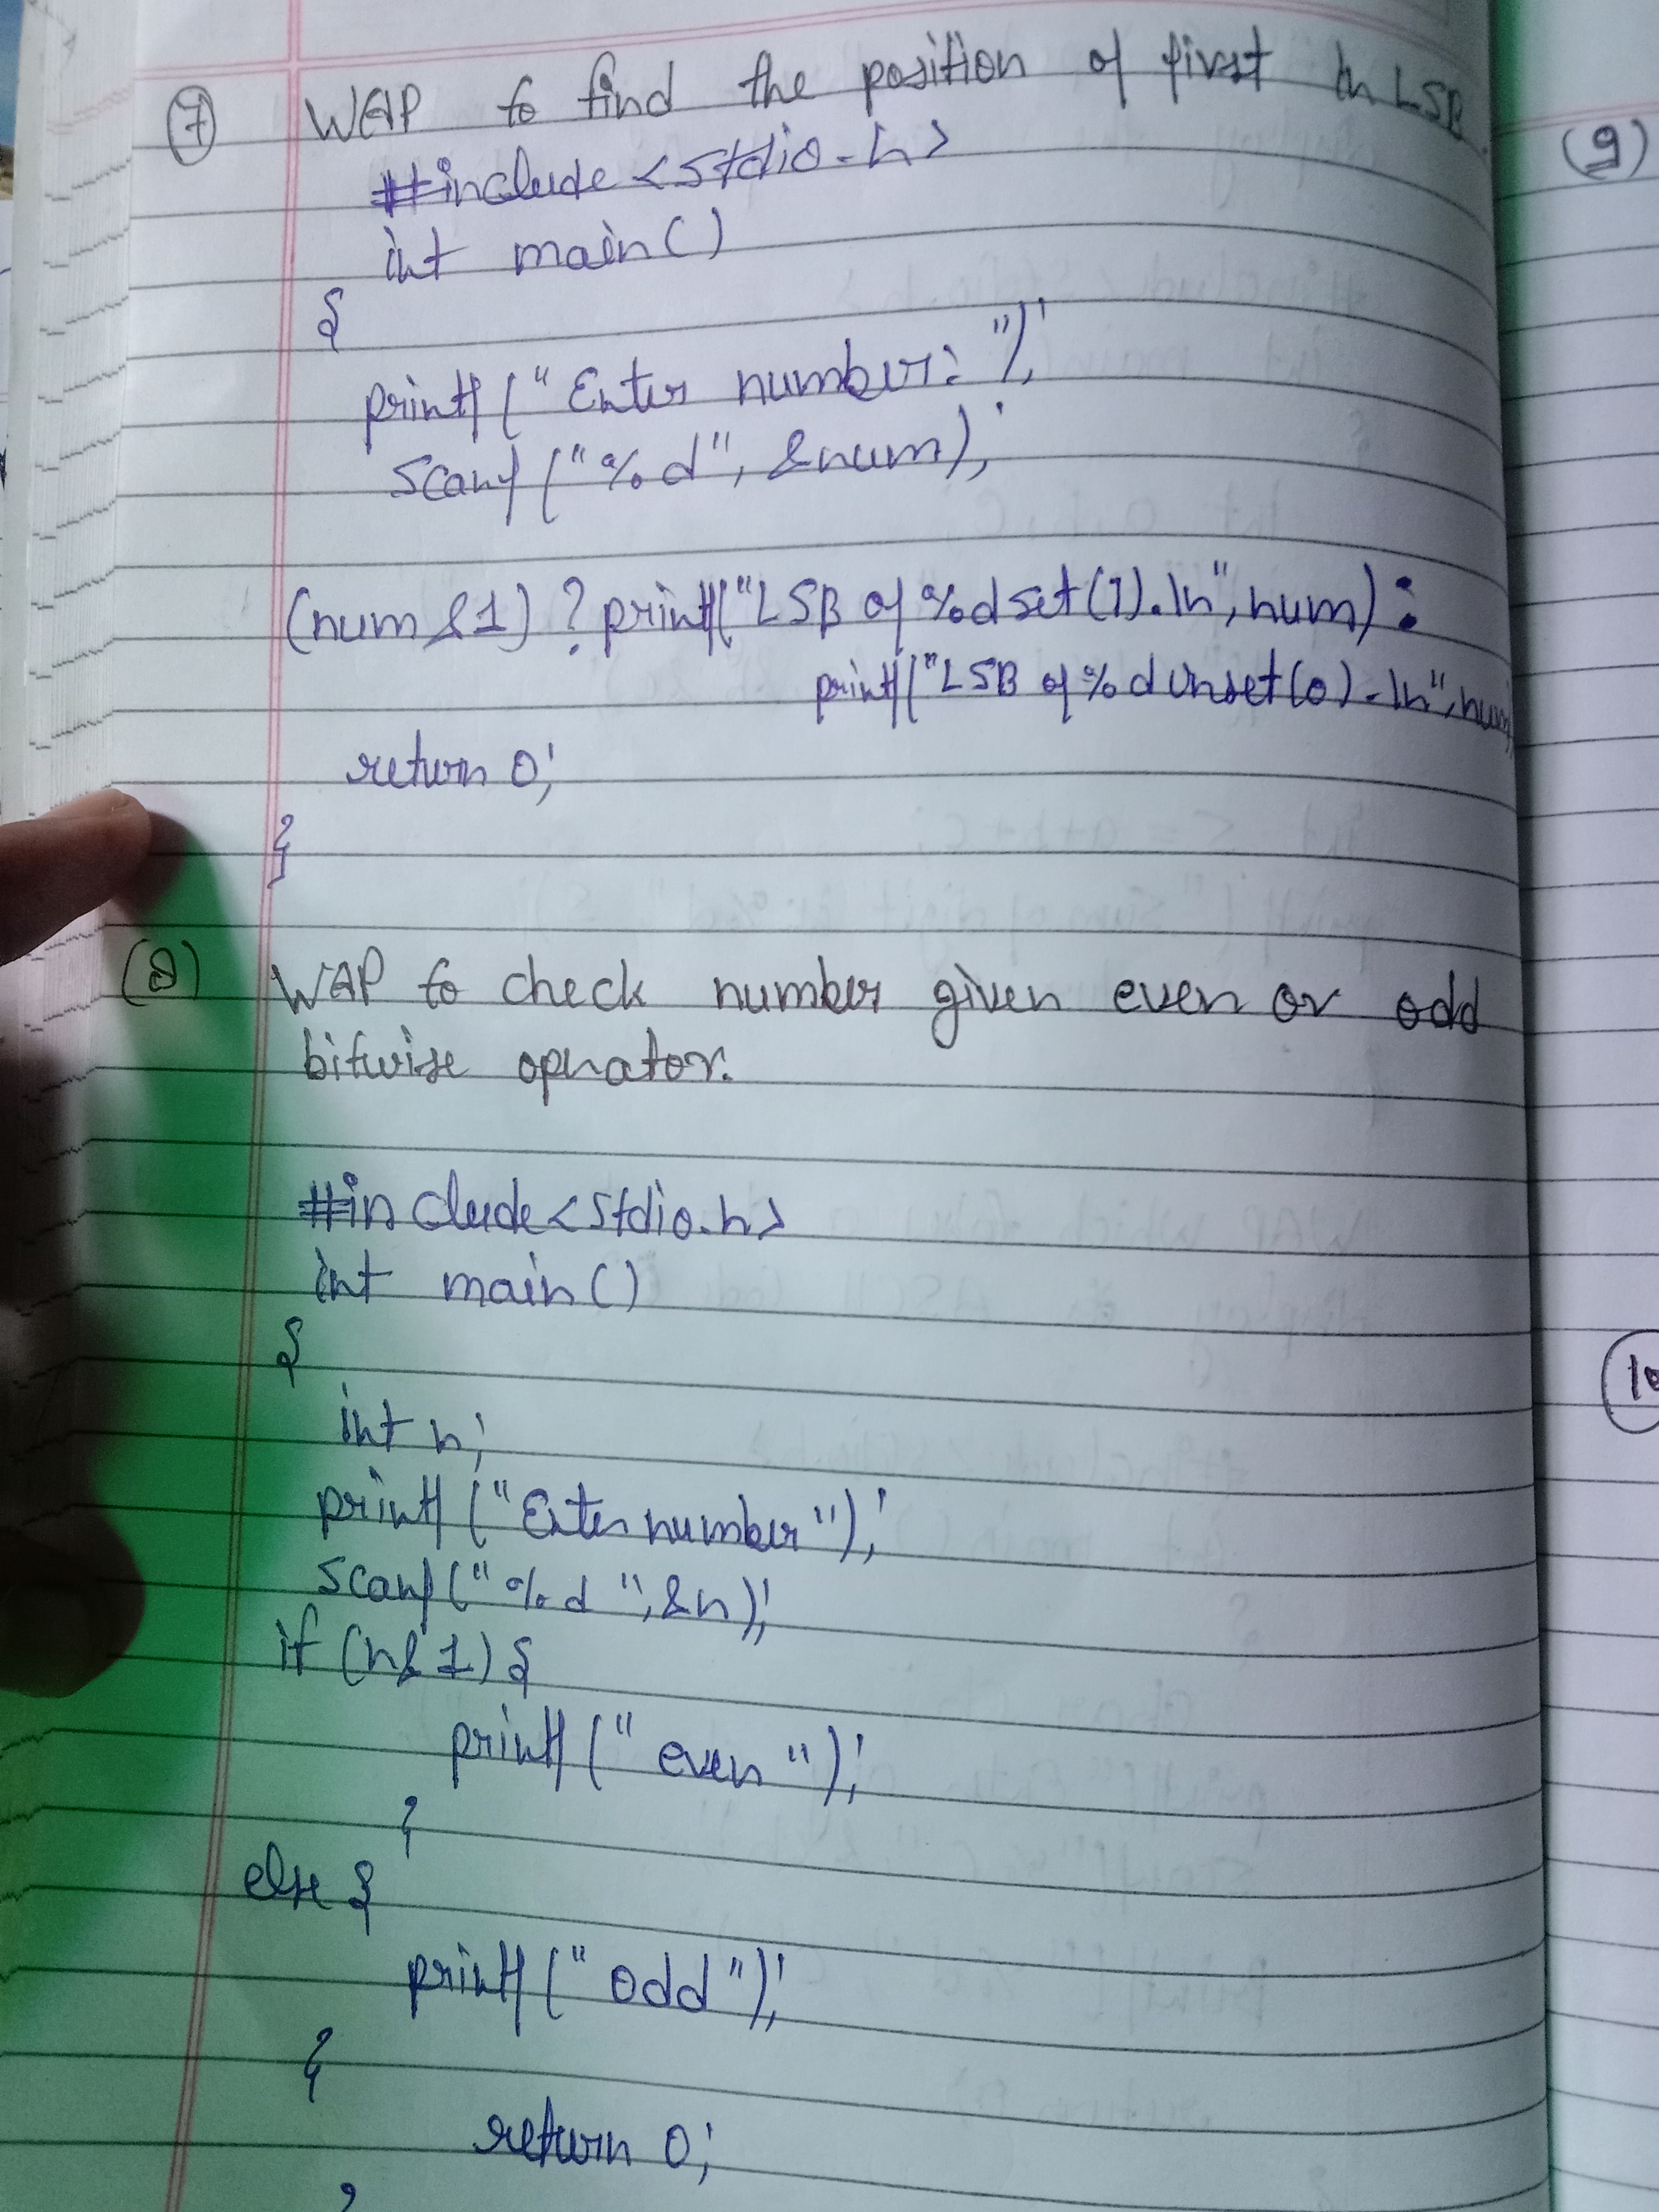 (7) WAP to find the position of first in LSB
#include<stdio.h>
int main()
{
printf("Enter number: ");
scanf("%d", &num);
(num &1) ? printf("LSB of %d set(1).\n", num) :
printf("LSB of %d unset(0).\n", num
return 0;
}
(8) WAP to check number given even or odd
bitwise oprator.
#include<stdio.h>
int main()
{
int n;
printf("Enter number");
scanf("%d", &n);
if (n&1) {
printf("even");
}
else {
printf("odd");
}
return 0;
(9)
10